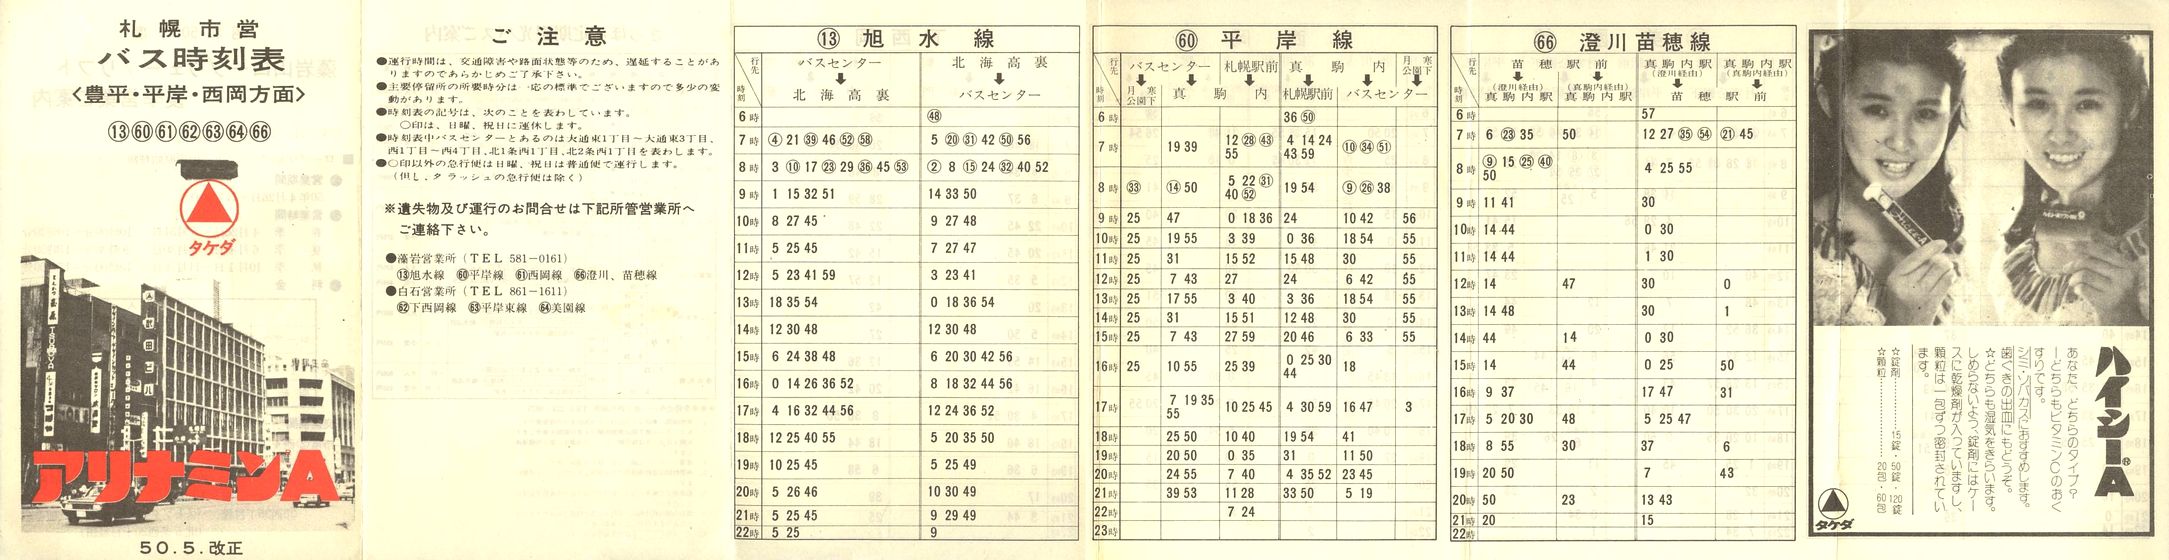 札幌市営
バス時刻表
〈豊平・平岸・西岡方面〉
⑬㊿㊽
タケダ
アリナミンA
50.5.改正
ご注意
●運行時間は、交通障害や路面状態等のため、遅延することがあ
りますのであらかじめご了承下さい。
●主要停留所の所要時分は一応の標準でございますので多少の変
動があります。
●時刻表の記号は、次のことを表わしています。
〇印は、日曜、祝日に運休します。
●時刻表中バスセンターとあるのは大通東1丁目〜大通東3丁目、
西1丁目〜西4丁目、北1条西1丁目、北2条西1丁目を表わします。
●〇印以外の急行便は日曜、祝日は普通便で運行します。
(但し、タラッシュの急行便は除く)
※遺失物及び運行のお問合せは下記所管営業所へ
ご連絡下さい。
●藻岩営業所(TEL 581-0161)
⑬旭水線 (60)平岸線 (61)西岡線 (66)澄川、苗穂線
●白石営業所(TEL 861-1611)
(62)下西岡線 (63)平岸東線 (64)美園線
⑬ 旭水線
行先 時刻 バスセンター→北海高裏 北海高裏→バスセンター
6時 | | ㊽
7時 | ④ 21 ㊴ 46 (52) (58) | 5 ⑳ ㉛ 42 ㊿ 56
8時 | 3 ⑩ 17 ㉓ 29 ㊱ 45 (53) | ② 8 ⑮ 24 ㉜ 40 52
9時 | 1 15 32 51 | 14 33 50
10時 | 8 27 45 | 9 27 48
11時 | 5 25 45 | 7 27 47
12時 | 5 23 41 59 | 3 23 41
13時 | 18 35 54 | 0 18 36 54
14時 | 12 30 48 | 12 30 48
15時 | 6 24 38 48 | 6 20 30 42 56
16時 | 0 14 26 36 52 | 8 18 32 44 56
17時 | 4 16 32 44 56 | 12 24 36 52
18時 | 12 25 40 55 | 5 20 35 50
19時 | 10 25 45 | 5 25 49
20時 | 5 26 46 | 10 30 49
21時 | 5 25 45 | 9 29 49
22時 | 5 25 | 9
(60) 平岸線
行先 時刻 バスセンター→月寒公園下 バスセンター→真駒内 札幌駅前→真駒内 真駒内→札幌駅前 真駒内→バスセンター 月寒公園下→バスセンター
6時 | | | | 36 ㊿ | |
7時 | | 19 39 | 12 ㉘ ㊸ 55 | 4 14 24 43 59 | ⑩ ㉞ (51) |
8時 | ㉝ | ⑭ 50 | 5 22 ㉛ 40 (52) | 19 54 | ⑨ ㉖ 38 |
9時 | 25 | 47 | 0 18 36 | 24 | 10 42 | 56
10時 | 25 | 19 55 | 3 39 | 0 36 | 18 54 | 55
11時 | 25 | 31 | 15 52 | 15 48 | 30 | 55
12時 | 25 | 7 43 | 27 | 24 | 6 42 | 55
13時 | 25 | 17 55 | 3 40 | 3 36 | 18 54 | 55
14時 | 25 | 31 | 15 51 | 12 48 | 30 | 55
15時 | 25 | 7 43 | 27 59 | 20 46 | 6 33 | 55
16時 | 25 | 10 55 | 25 39 | 0 25 30 44 | 18 |
17時 | | 7 19 35 55 | 10 25 45 | 4 30 59 | 16 47 | 3
18時 | | 25 50 | 10 40 | 19 54 | 41 |
19時 | | 20 50 | 0 35 | 31 | 11 50 |
20時 | | 24 55 | 7 40 | 4 35 52 | 23 45 |
21時 | | 39 53 | 11 28 | 33 50 | 5 19 |
22時 | | | 7 24 | | |
23時
(66) 澄川苗穂線
行先 時刻 苗穂駅前→(澄川経由)真駒内駅 苗穂駅前→(真駒内経由)真駒内駅 真駒内駅(澄川経由)→苗穂駅前 真駒内駅(真駒内経由)→苗穂駅前
6時 | | | 57 |
7時 | 6 ㉓ 35 | 50 | 12 27 ㉟ (54) | ㉑ 45
8時 | ⑨ 15 ㉕ ㊵ 50 | | 4 25 55 |
9時 | 11 41 | | 30 |
10時 | 14 44 | | 0 30 |
11時 | 14 44 | | 1 30 |
12時 | 14 | 47 | 30 | 0
13時 | 14 48 | | 30 | 1
14時 | 44 | 14 | 0 30 |
15時 | 14 | 44 | 0 25 | 50
16時 | 9 37 | | 17 47 | 31
17時 | 5 20 30 | 48 | 5 25 47 |
18時 | 8 55 | 30 | 37 | 6
19時 | 20 50 | | 7 | 43
20時 | 50 | 23 | 13 43 |
21時 | 20 | | 15 |
22時
ハイシーA
あなた、どちらのタイプ?
―どちらもビタミンCのおく
すりです。
シミ・ソバカスにおすすめします。
歯ぐきの出血にもどうぞ。
☆どちらも湿気をきらいます。
しめらないよう、錠剤にはケー
スに乾燥剤が入っていますし、
顆粒は一包ずつ密封されてい
ます。
☆錠剤…………15錠・50錠・120錠
☆顆粒…………20包・60包
タケダ